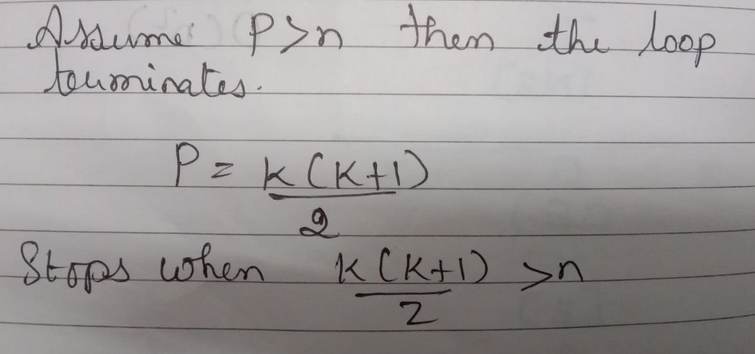 Assume P>n then the loop
terminates.
P = K(K+1)/2
Stops when K(K+1)/2 >n